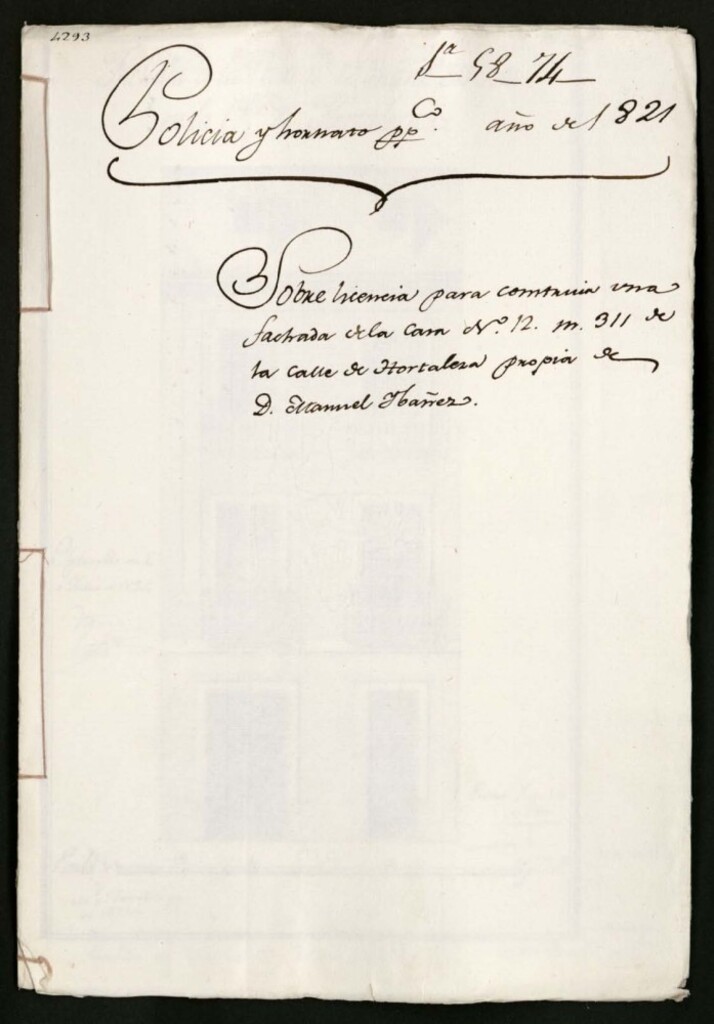 4293
1ª 58-74
Policia y hornato ppCo. año de 1821
Sobre licencia para construir una
fachada de la Casa Nº. 12. m. 311 de
la calle de Hortaleza propia de
D. Manuel Ybañez.